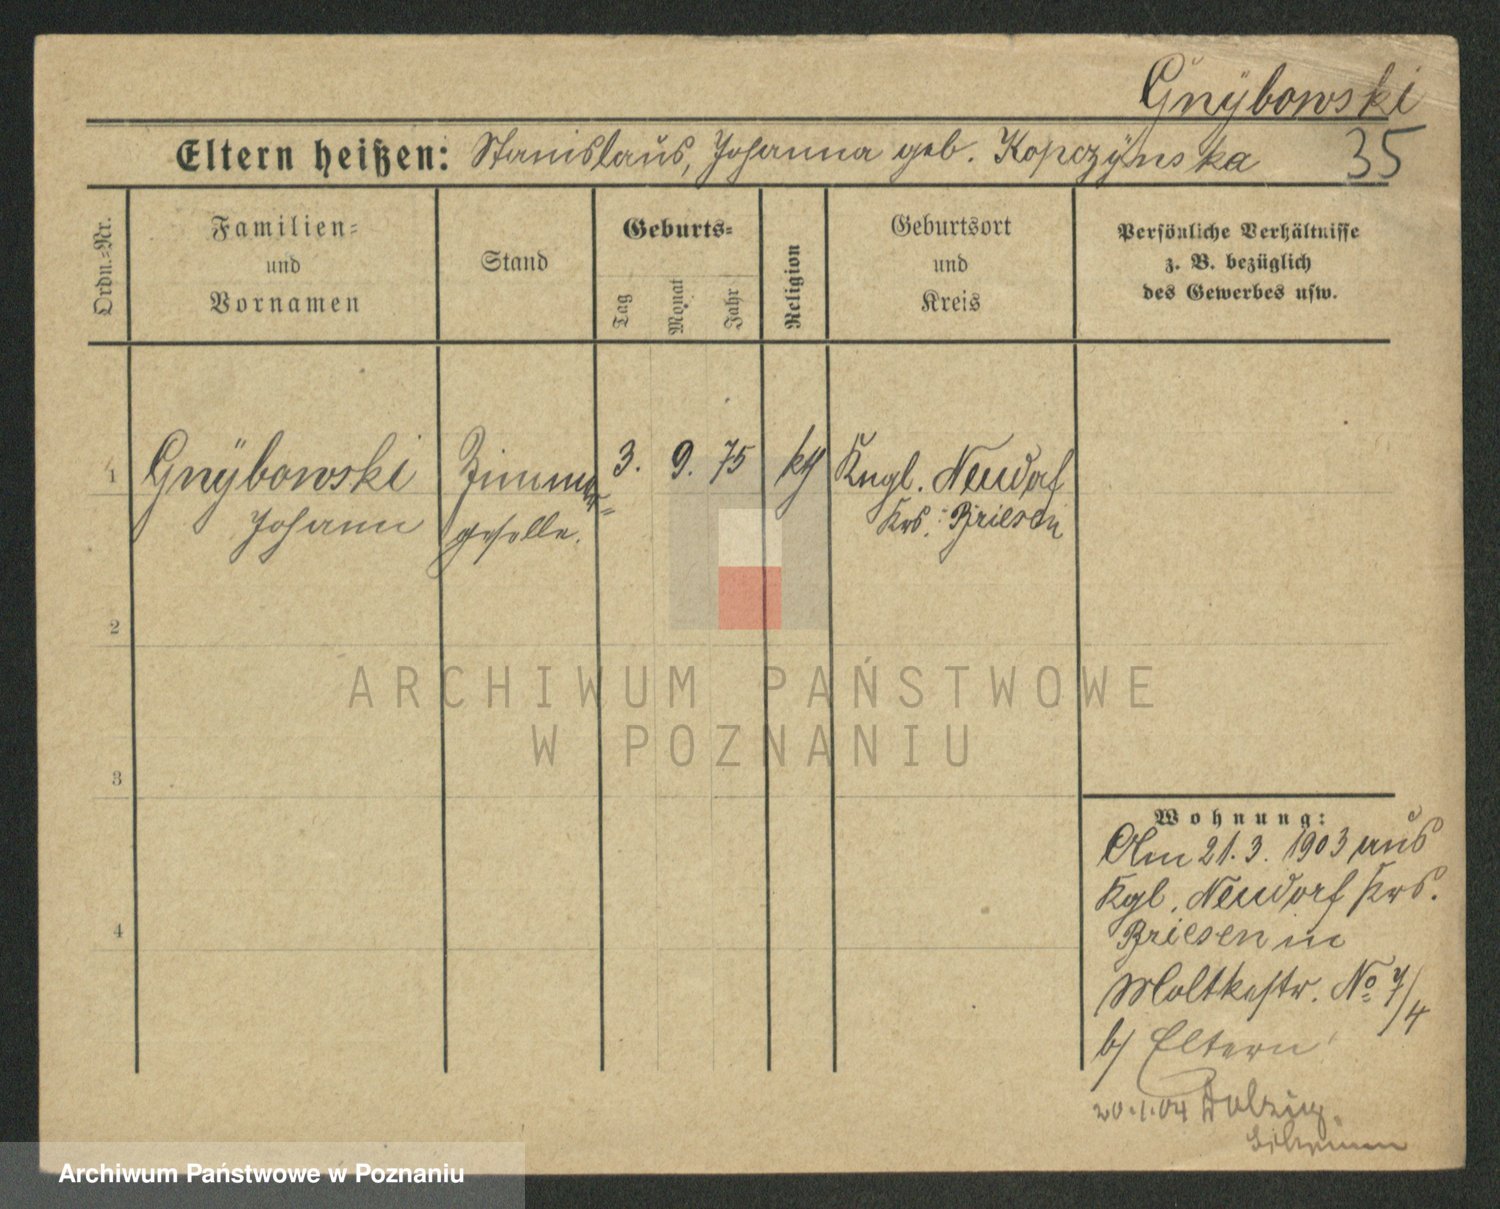 Gnÿbowski
Eltern heißen: Stanislaus, Johanna geb. Kopczÿnska 35
Ordn.-Nr.
Familien-
und
Vornamen
Stand
Geburts-
Tag
Monat
Jahr
Religion
Geburtsort
und
Kreis
Persönliche Verhältnisse
z. B. bezüglich
des Gewerbes usw.
1 Gnÿbowski Zimmer- 3. 9. 75 kth Kngl. Neudorf
Johann geselle. Krs. Briesen
2
ARCHIWUM PAŃSTWOWE
W POZNANIU
3
4
Wohnung:
Am 21.3. 1903 aus
Kgl. Neudorf Krs.
Briesen in
Moltkestr. No 7/4
b/ Eltern
20.1.04 Dolzig
Archiwum Państwowe w Poznaniu